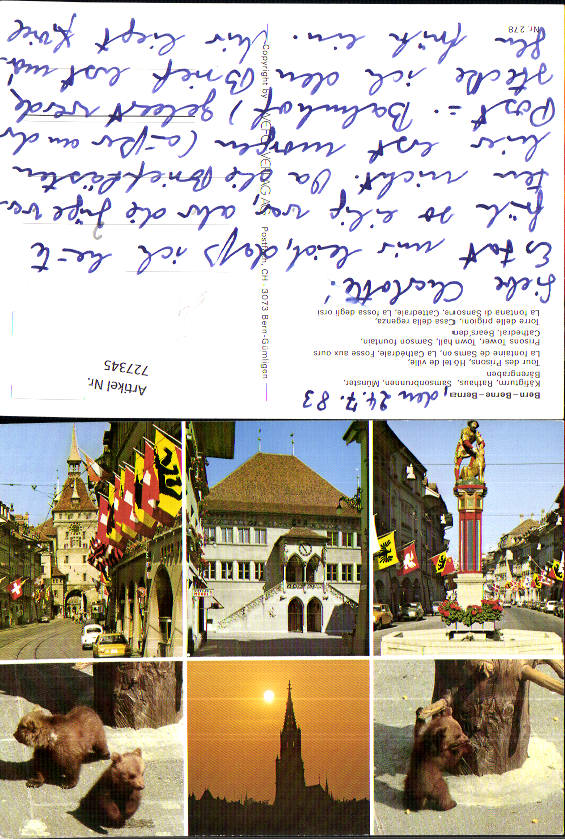 Bern–Berne–Berna, den 24.7.83
Käfigturm, Rathaus, Samsonbrunnen, Münster,
Bärengraben
Tour des Prisons, Hôtel de ville,
La fontaine de Samson, La Cathédrale, Fosse aux ours
Prisons Tower, Town hall, Samson fountain,
Cathedral, Bears'den
Torre delle prigioni, Casa della regenza,
La fontana di Sansone, Cattedrale, La fossa degli orsi
Liebe Charlotte!
Es tat mir leid, daß ich heute
früh so eilig war, aber die Züge war
ten nicht. Da die Briefkästen
hier erst morgen (außer an der
Post = Bahnhof) geleert werden,
stecke ich den Brief erst mor
gen früh ein. Mir liegt
Nr. 278
Copyright by WEFO VERLAG AG Postfach, CH 3073 Bern-Gümligen
Artikel Nr.
727345